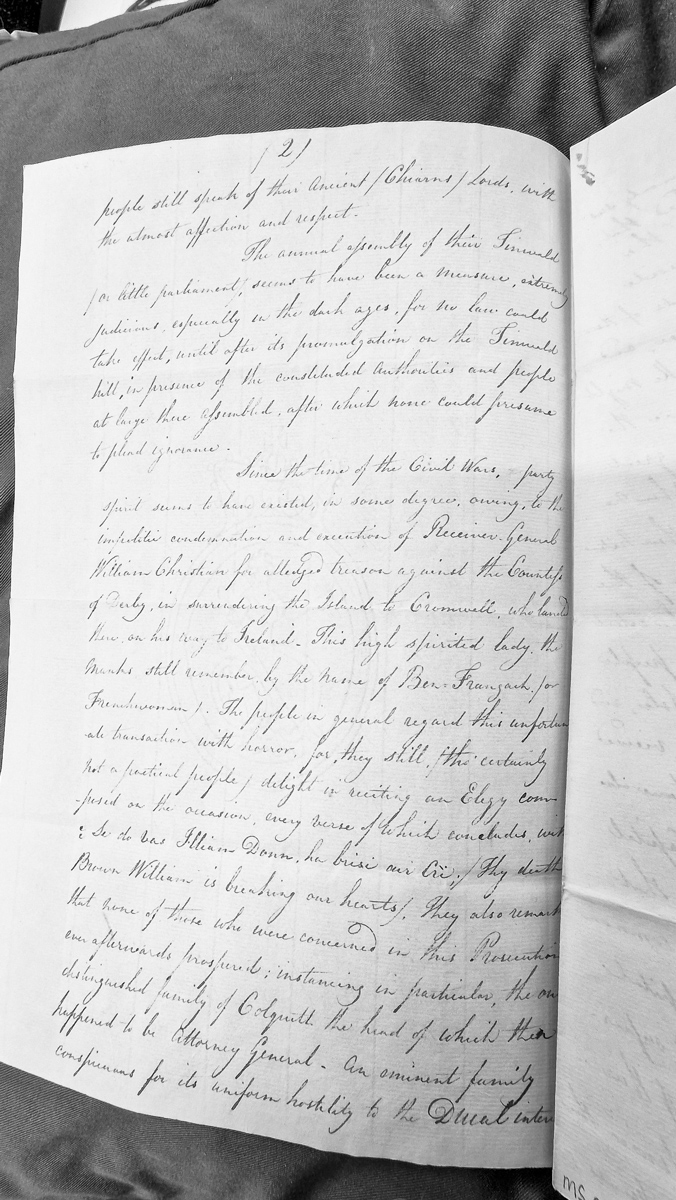 / 2 /
people still speak of their Ancient / Chiarns / Lords, with
the utmost affection and respect.
The annual assembly of their Tinwald
/ or little parliament /, seems to have been a measure, extremely
judicious, especially in the dark ages, for no law could
take effect, until after its promulgation on the Tinwald
hill, in presence of the constituted Authorities and people
at large there assembled, after which none could presume
to plead ignorance.
Since the time of the Civil Wars, party
spirit seems to have existed, in some degree, owing, to the
impolitic condemnation and execution of Receiver-General
William Christian for alledged treason against the Countess
of Derby, in surrendering the Island to Cromwell, who landed
there, on his way to Ireland - This high spirited lady, the
Manks still remember, by the name of Ben-Frangach, / or
Frenchwoman /. The people in general regard this unfortun
ate transaction with horror, for, they still, / tho' certainly
not a poetical people / delight in reciting an Elegy com-
-posed on the occasion, every verse of which concludes, with
: Se do vas Illiam Donn, ha brisi air Cri. / Thy death
Brown William is breaking our hearts /. They also remark
that none of those who were concerned in this Prosecution
ever afterwards prospered; instancing in particular, the on
distinguished family of Colquitt the head of which then
happened to be Attorney General - An eminent family
conspicuous for its uniform hostility to the Ducal inter
MS